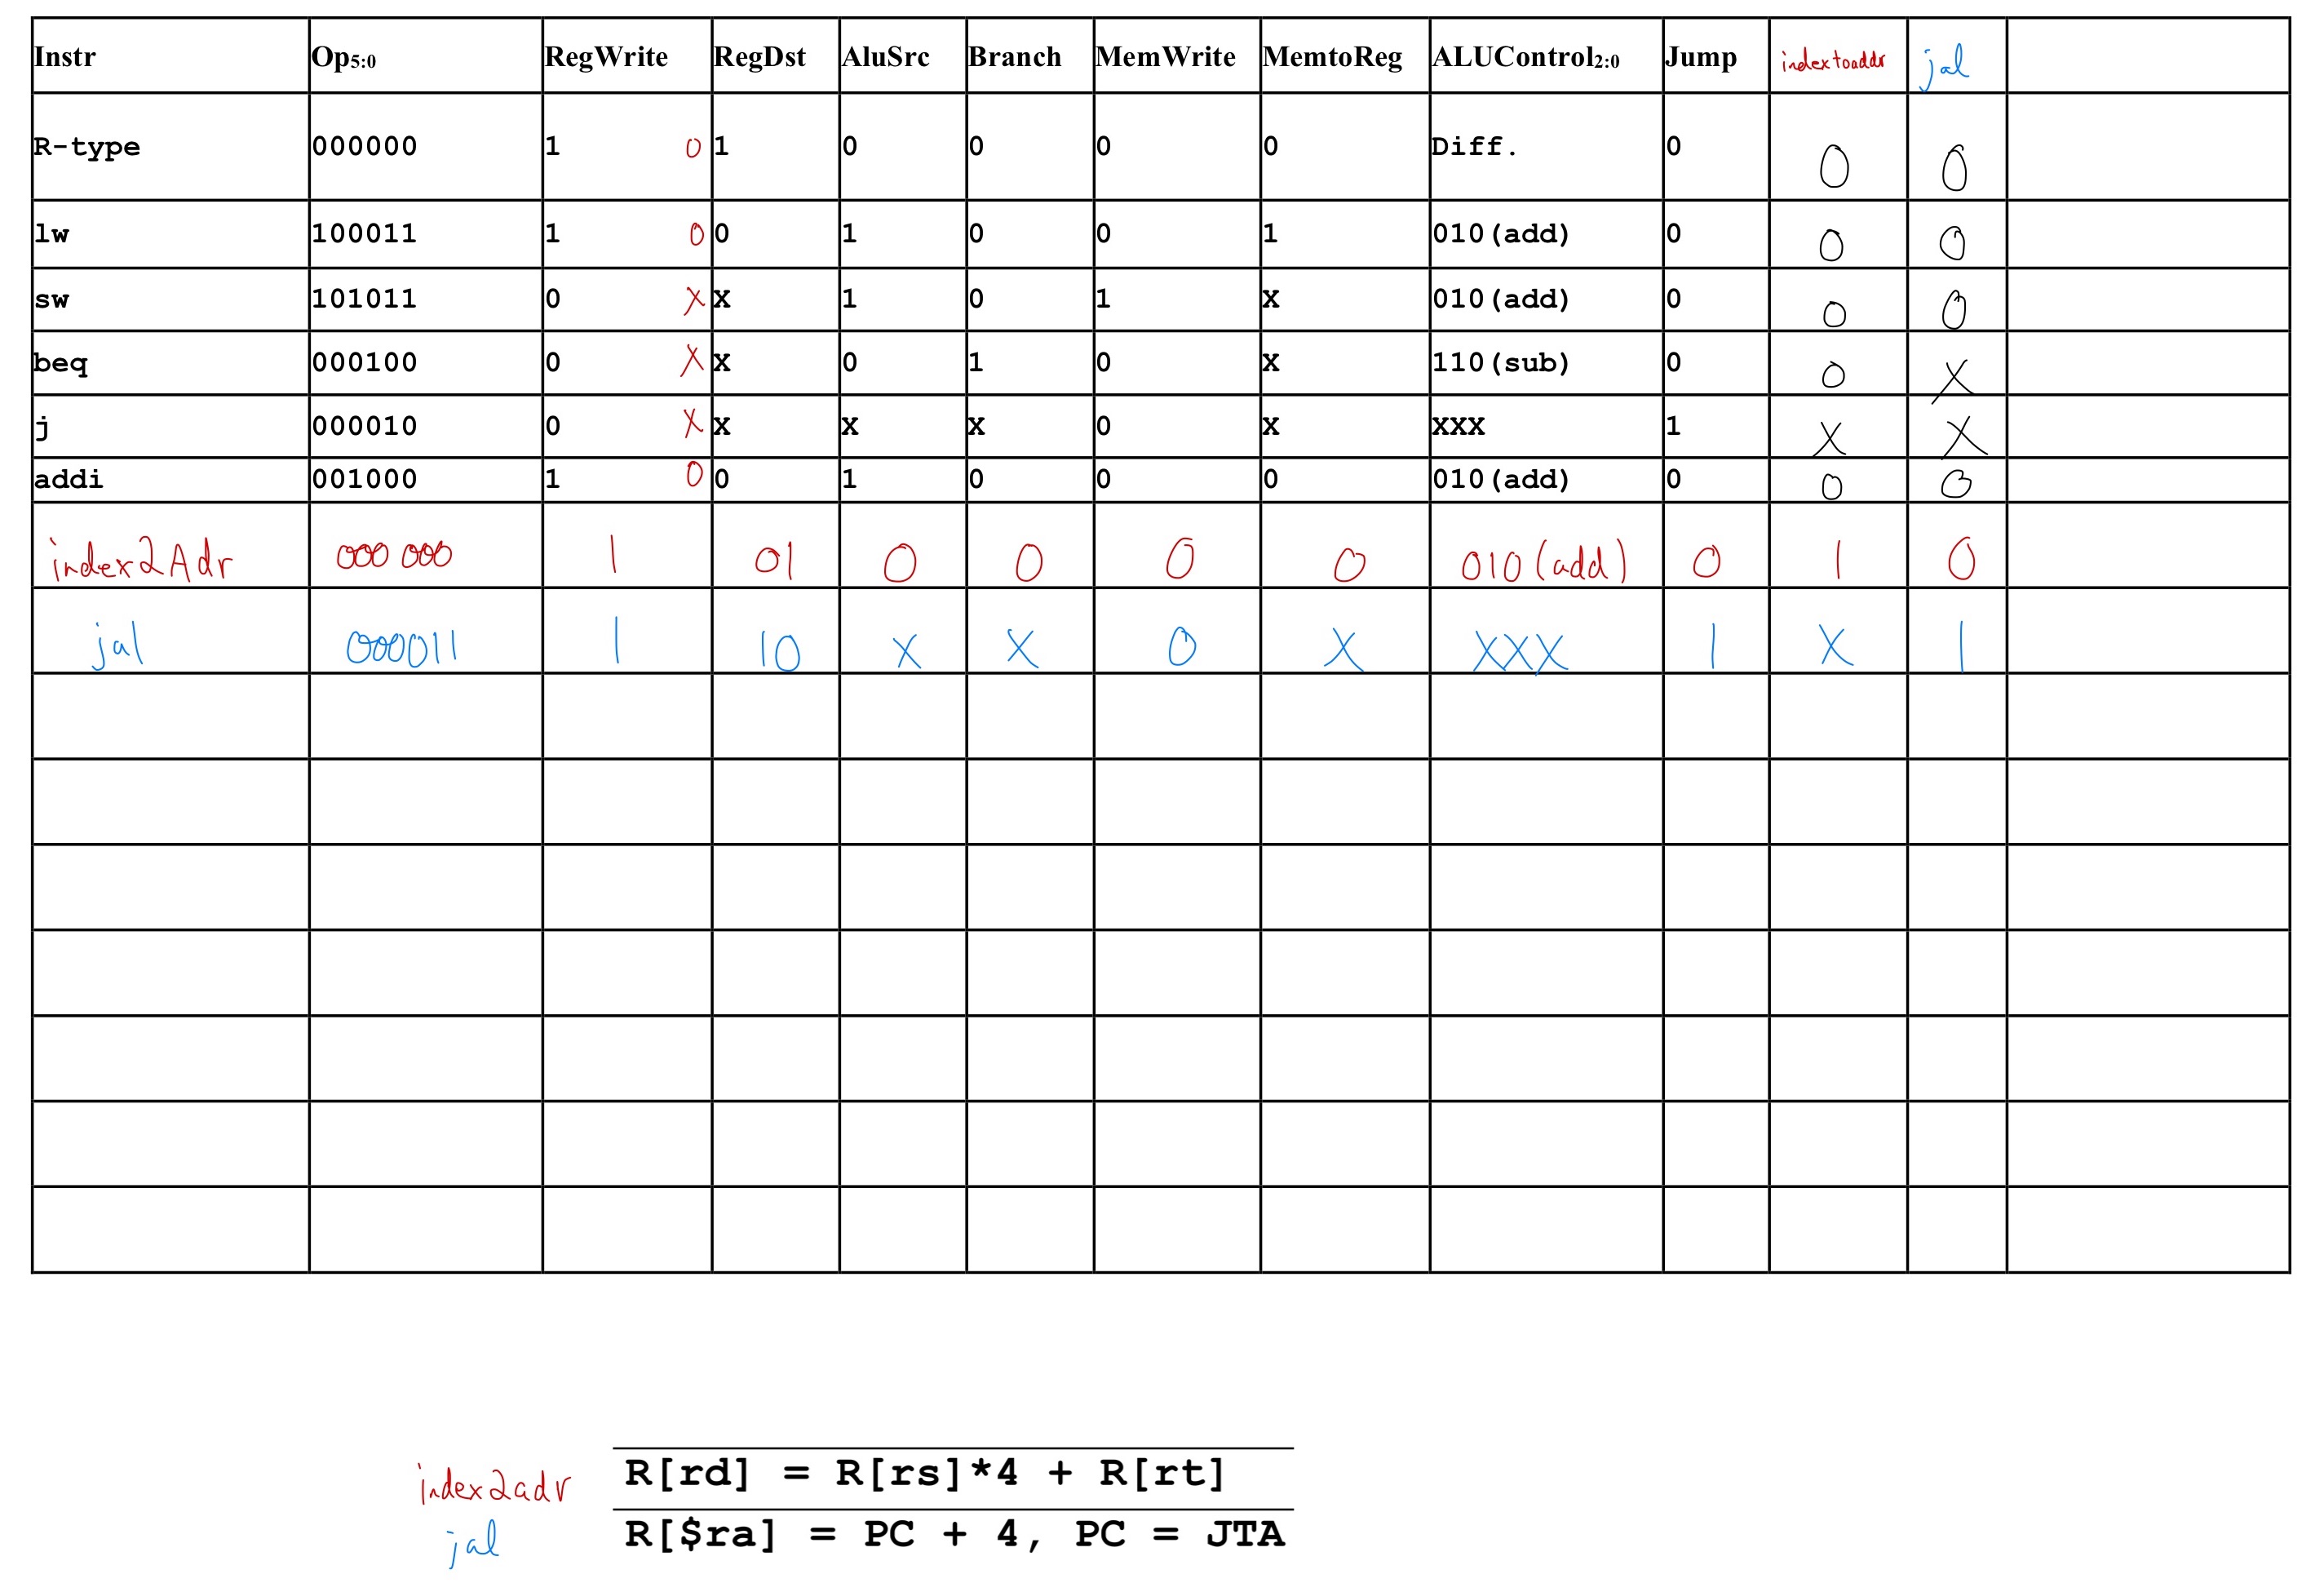 Instr Op5:0 RegWrite RegDst AluSrc Branch MemWrite MemtoReg ALUControl2:0 Jump indextoaddr jal
R-type 000000 1 01 0 0 0 0 Diff. 0 0 0
lw 100011 1 00 1 0 0 1 010(add) 0 0 0
sw 101011 0 XX 1 0 1 X 010(add) 0 0 0
beq 000100 0 XX 0 1 0 X 110(sub) 0 0 X
j 000010 0 XX X X 0 X XXX 1 X X
addi 001000 1 00 1 0 0 0 010(add) 0 0 0
index2Adr 000000 1 01 0 0 0 0 010(add) 0 1 0
jal 000011 1 10 X X 0 X XXX 1 X 1
index2adr R[rd] = R[rs]*4 + R[rt]
jal R[$ra] = PC + 4, PC = JTA